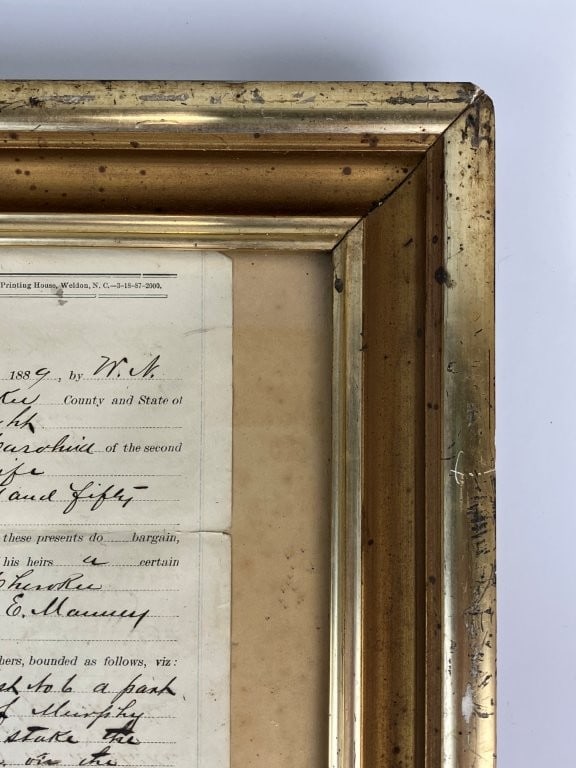 Printing House, Weldon, N. C.—3-18-87-2000.
1889, by W. N.
kee County and State of
of the second
ife
and fifty
these presents do bargain,
his heirs a certain
Cherokee
E. Manney
hers, bounded as follows, viz:
No. 6 a part
of Murphy
stake the
on the